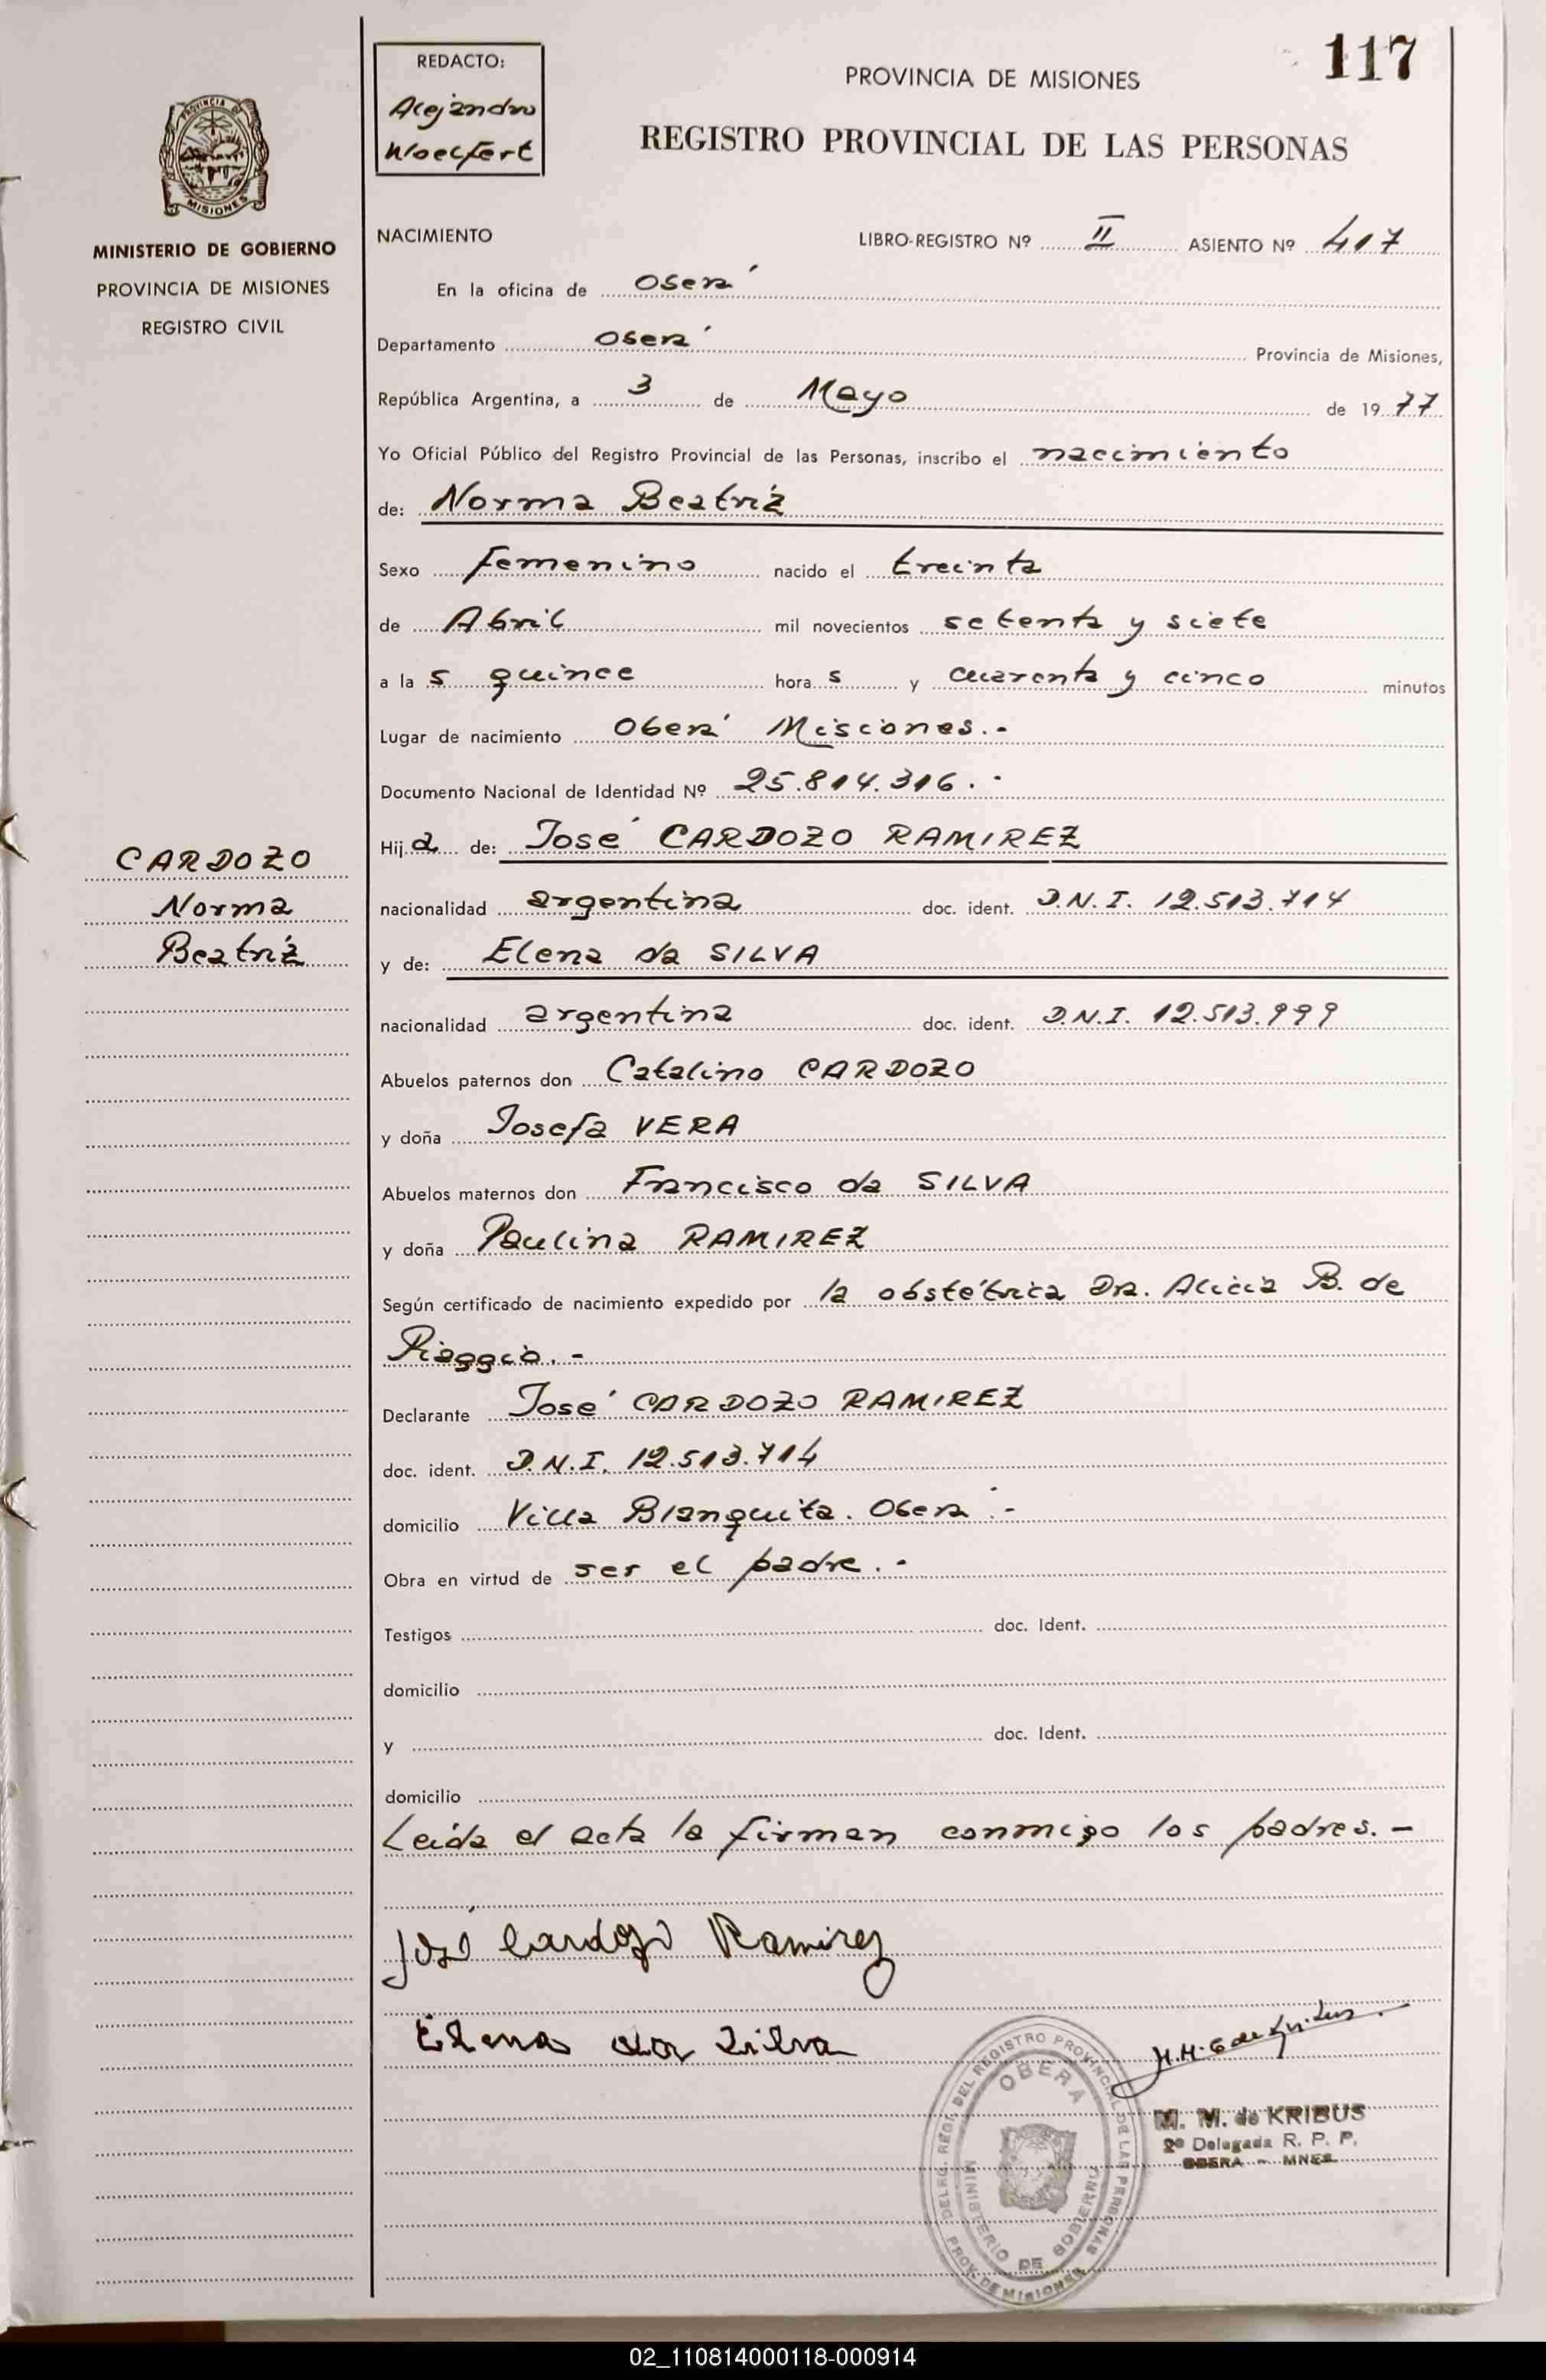 117
REDACTO:
Alejandro
Woelfert
PROVINCIA DE MISIONES
REGISTRO PROVINCIAL DE LAS PERSONAS
PROVINCIA DE
MISIONES
MINISTERIO DE GOBIERNO
PROVINCIA DE MISIONES
REGISTRO CIVIL
NACIMIENTO LIBRO-REGISTRO Nº II ASIENTO Nº 417
En la oficina de Oberá
Departamento Oberá Provincia de Misiones,
República Argentina, a 3 de Mayo de 1977
Yo Oficial Público del Registro Provincial de las Personas, inscribo el nacimiento
de: Norma Beatriz
Sexo femenino nacido el treinta
de Abril mil novecientos setenta y siete
a la s quince hora s y cuarenta y cinco minutos
Lugar de nacimiento Oberá Misiones.-
Documento Nacional de Identidad Nº 25.814.316.-
Hija de: José CARDOZO RAMIREZ
CARDOZO
Norma
Beatriz
nacionalidad argentina doc. ident. D.N.I. 12.513.714
y de: Elena da SILVA
nacionalidad argentina doc. ident. D.N.I. 12.513.999
Abuelos paternos don Catalino CARDOZO
y doña Josefa VERA
Abuelos maternos don Francisco da SILVA
y doña Paulina RAMIREZ
Según certificado de nacimiento expedido por la obstétrica Dra. Alicia B. de
Piaggio.-
Declarante José CARDOZO RAMIREZ
doc. ident. D.N.I. 12.513.714
domicilio Villa Blanquita. Oberá.-
Obra en virtud de ser el padre.-
Testigos doc. Ident.
domicilio
y doc. Ident.
domicilio
Leída el acta la firman conmigo los padres.-
José Cardozo Ramirez
Elena da Silva
DELEG. REGI. DEL REGISTRO PROVINCIAL DE LAS PERSONAS
OBERA
MINISTERIO DE GOBIERNO
PROV. DE MISIONES
M. M. de KRIBUS
2ª Delegada R. P. P.
OBERA - MNES.
02_110814000118-000914